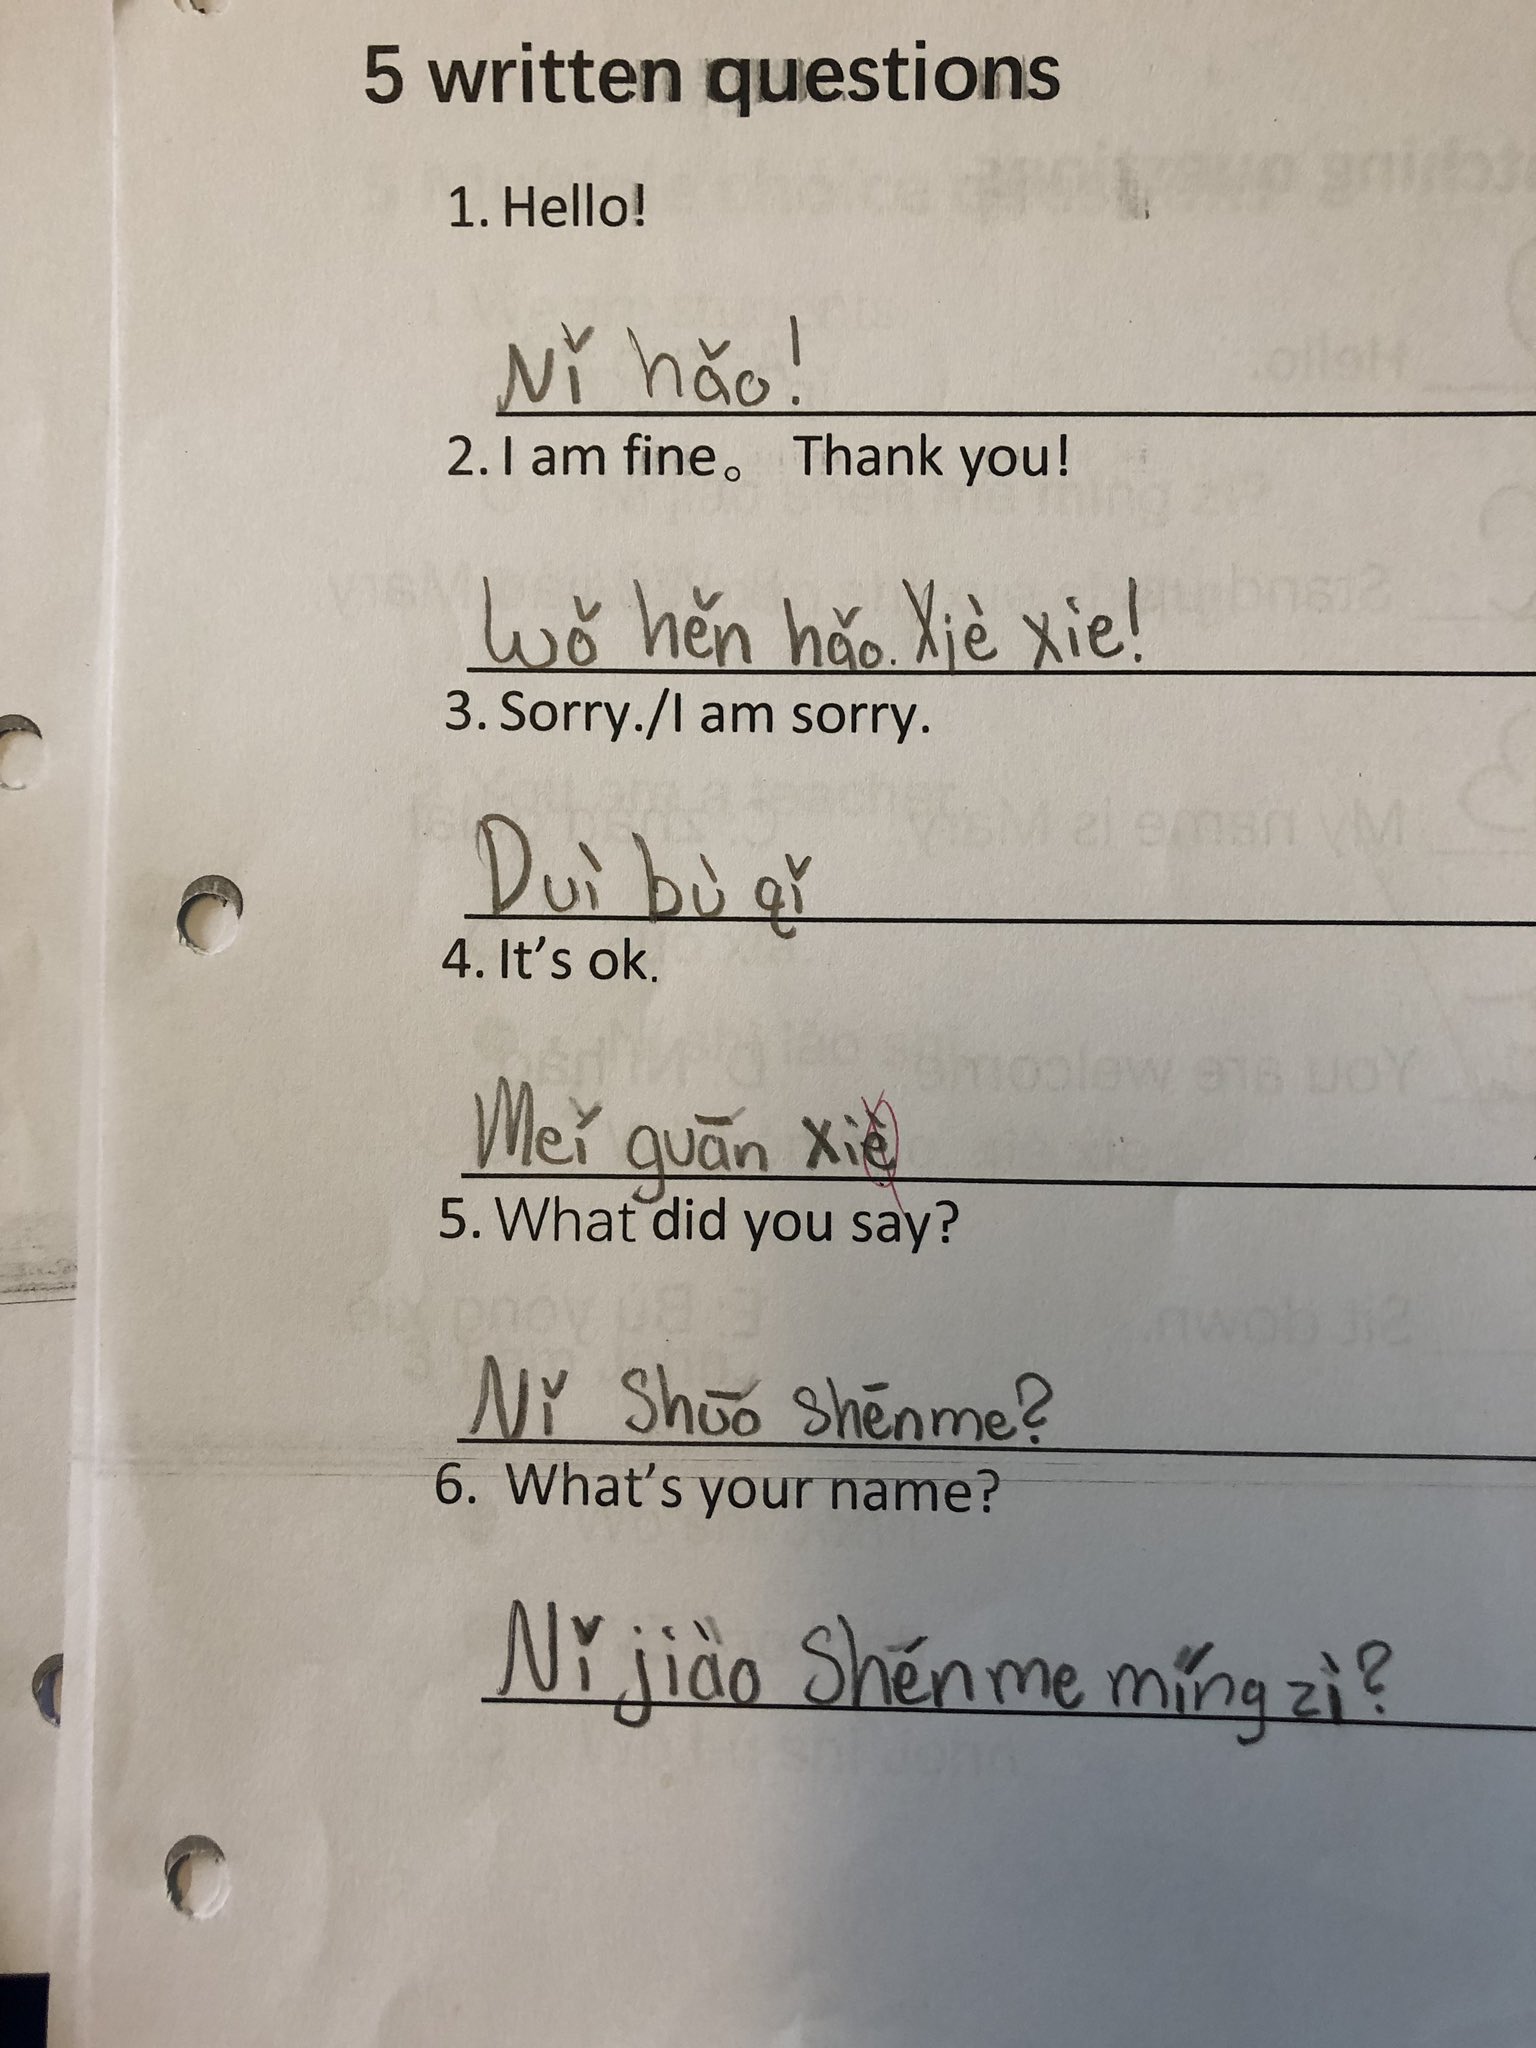 5 written questions
1. Hello!
Nǐ hǎo!
2. I am fine。 Thank you!
Wǒ hěn hǎo. Xiè xie!
3. Sorry./I am sorry.
Duì bù qǐ
4. It's ok.
Meǐ guān xiè
5. What did you say?
Nǐ Shūō shēnme?
6. What's your name?
Nǐ jiào Shénme míng zì?